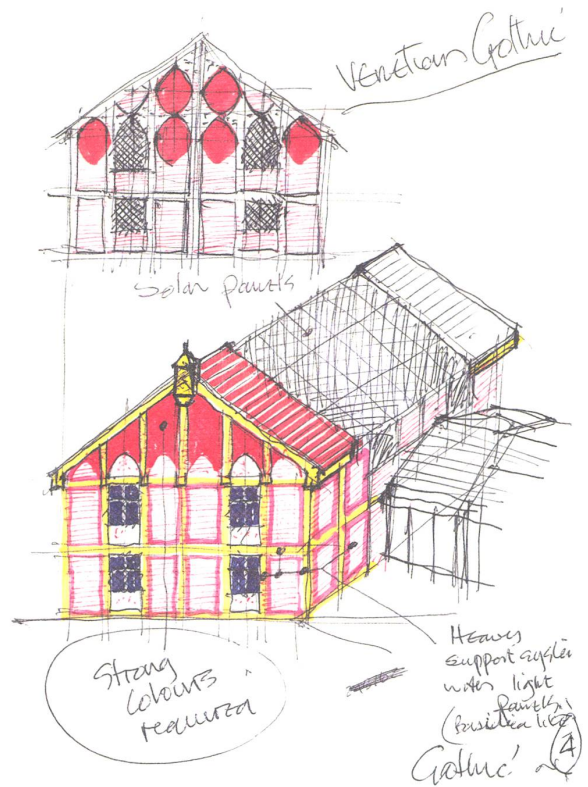 Venetian Gothic
Solar panels
Strong
colours
required
Heavy
support system
with light
panels
(Basilica like)
4
Gothic!